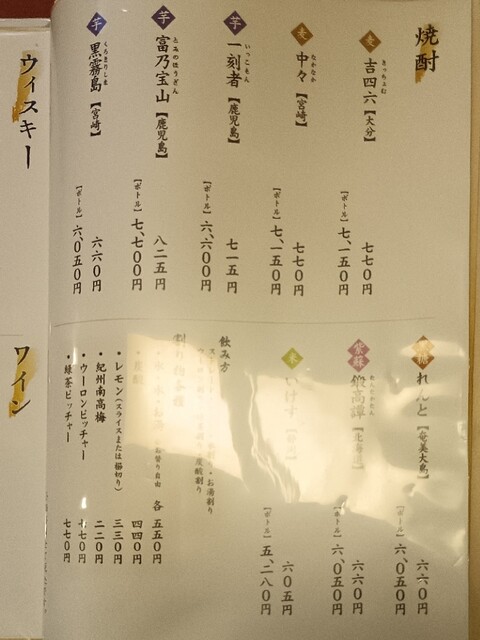 焼酎
麦 吉四六【大分】 きっちょむ
七七〇円
【ボトル】七、一五〇円
麦 中々【宮崎】 なかなか
七七〇円
【ボトル】七、一五〇円
芋 一刻者【鹿児島】 いっこもん
七一五円
【ボトル】六、六〇〇円
芋 富乃宝山【鹿児島】 とみのほうざん
八二五円
【ボトル】七、七〇〇円
芋 黒霧島【宮崎】 くろきりしま
六六〇円
【ボトル】六、〇五〇円
れんと【奄美大島】
六六〇円
【ボトル】六、〇五〇円
紫蘇 鍛高譚【北海道】 たんたかたん
六六〇円
【ボトル】六、〇五〇円
米 いけす
六〇五円
【ボトル】五、二八〇円
飲み方
・お湯割り
炭酸割り
各 五五〇円
四四〇円
・レモン(スライスまたは櫛切り) 三三〇円
・紀州南高梅 二二〇円
・ウーロンピッチャー 七七〇円
・緑茶ピッチャー 七七〇円
ウィスキー
ワイン